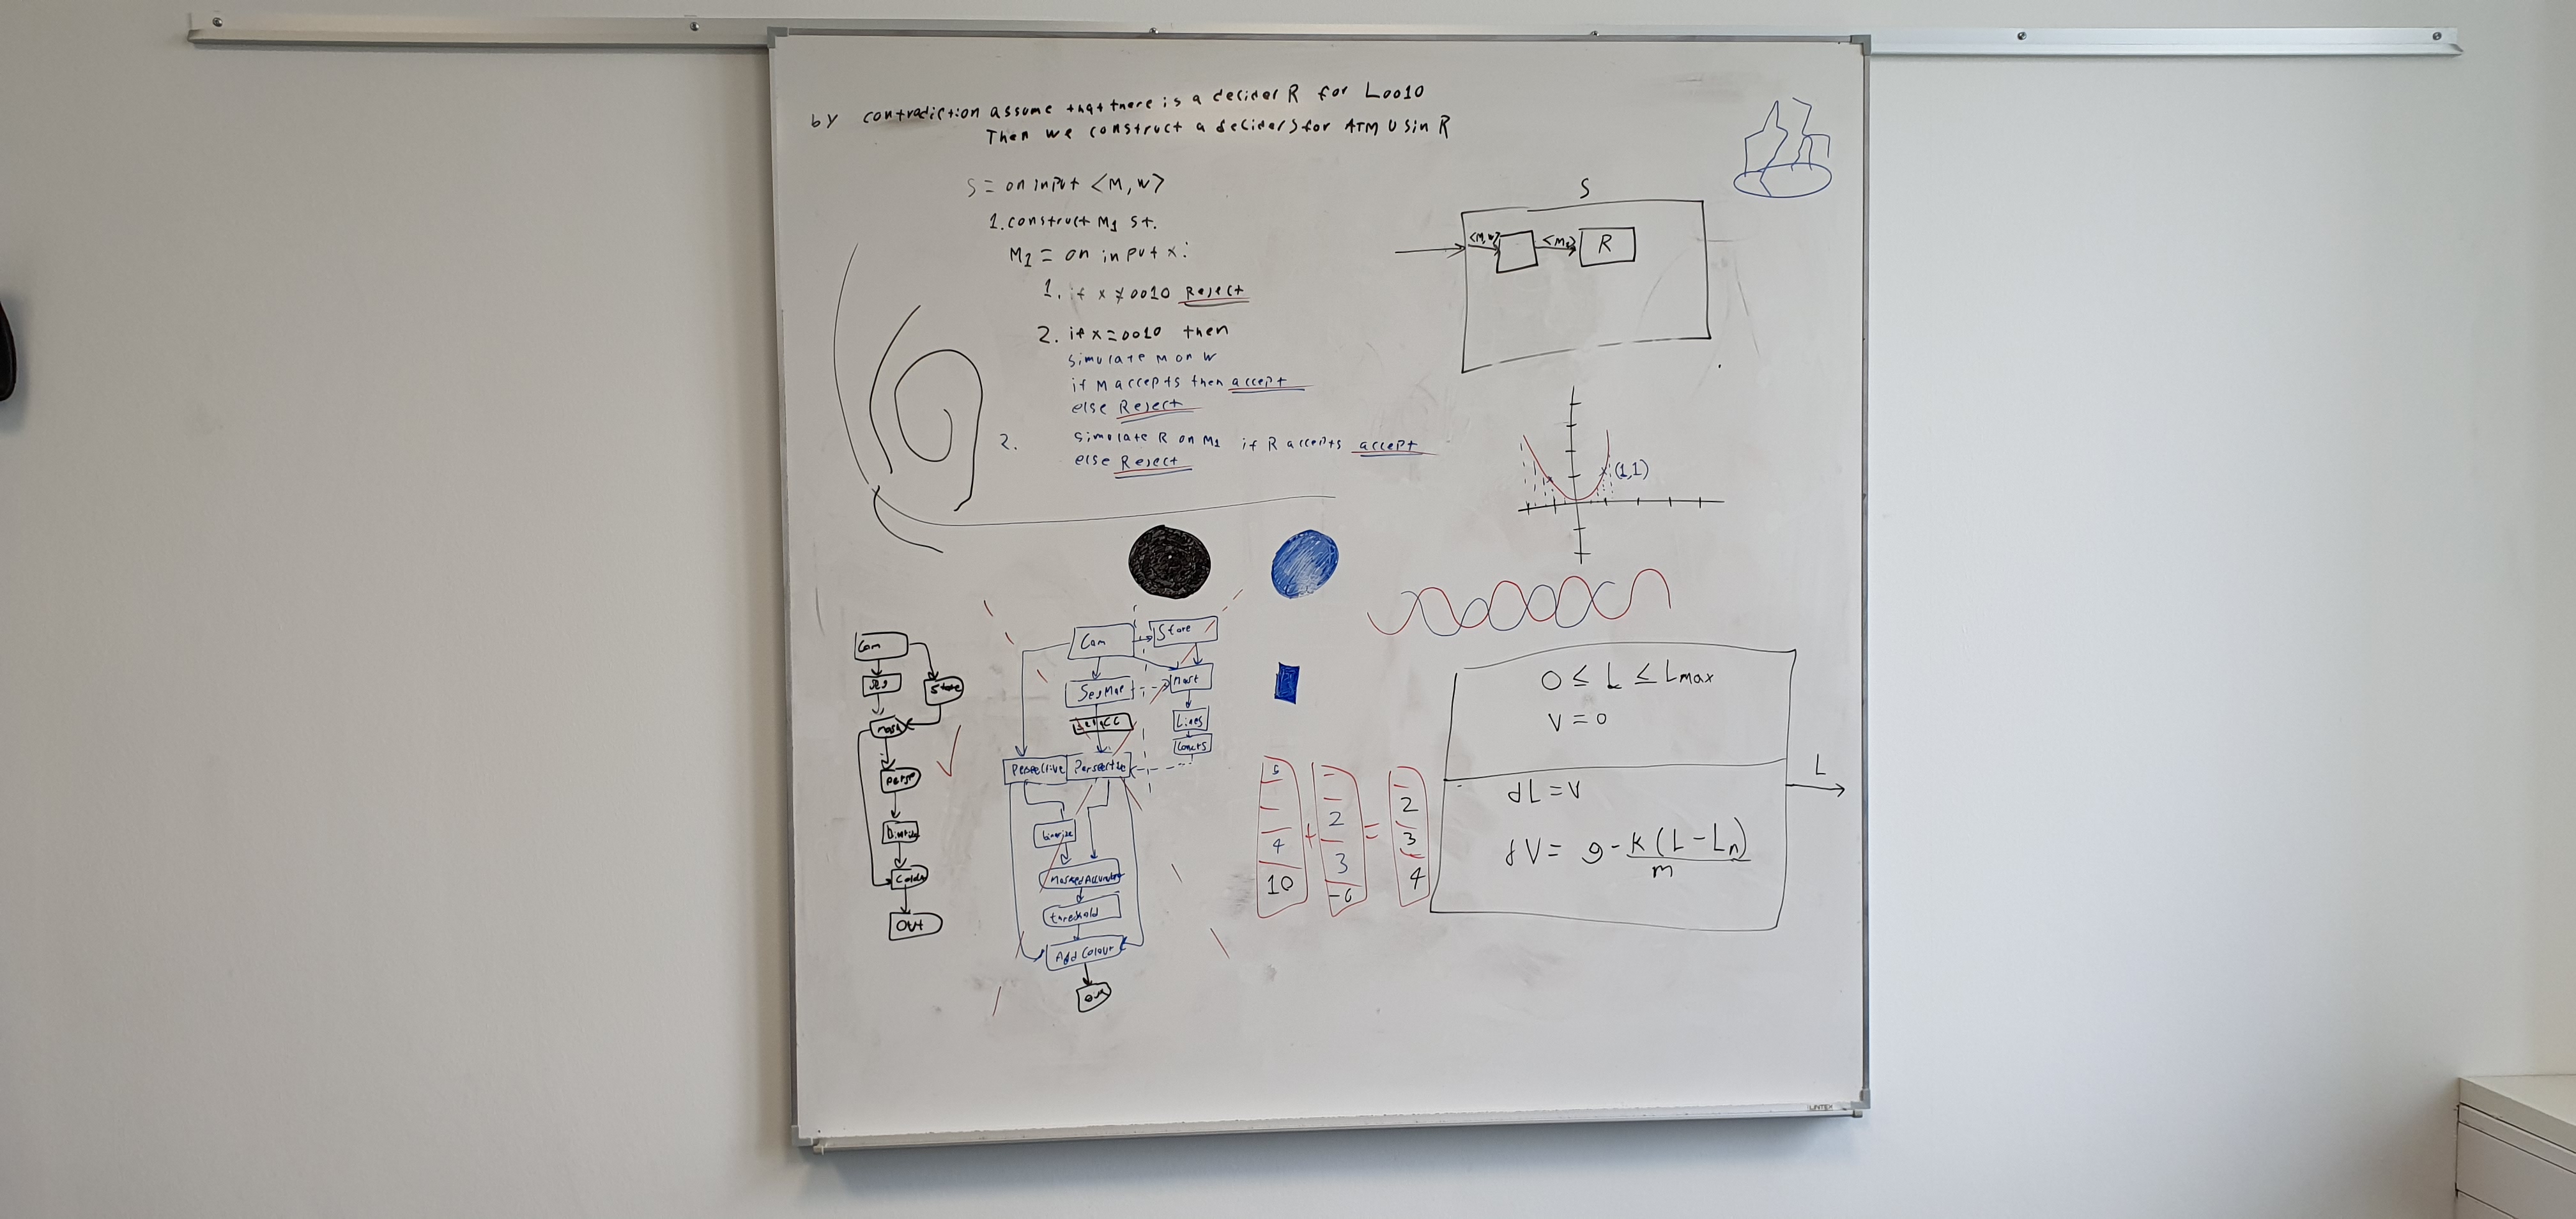 by contradiction assume that there is a decider R for L0010
Then we construct a decider S for ATM Usin R
S = on input <M, w>
1. construct M1 st.
M1 = on input x:
1. if x ≠ 0010 Reject
2. if x = 0010 then
simulate M on W
if M accepts then accept
else Reject
2. simulate R on M1 if R accepts accept
else Reject
S
<M, w>
<M1>
R
(1,1)
Cam
Store
Mask
Persp
OUT
Cam
Store
SegMap
Mask
Lines
Perspective
Binarize
Masked Accumulator
threshold
Add Colour
out
5
4
10
+
2
3
-6
=
2
3
4
0 ≤ L ≤ Lmax
V = 0
dL = V
dV = g - k(L - Ln)
m
L